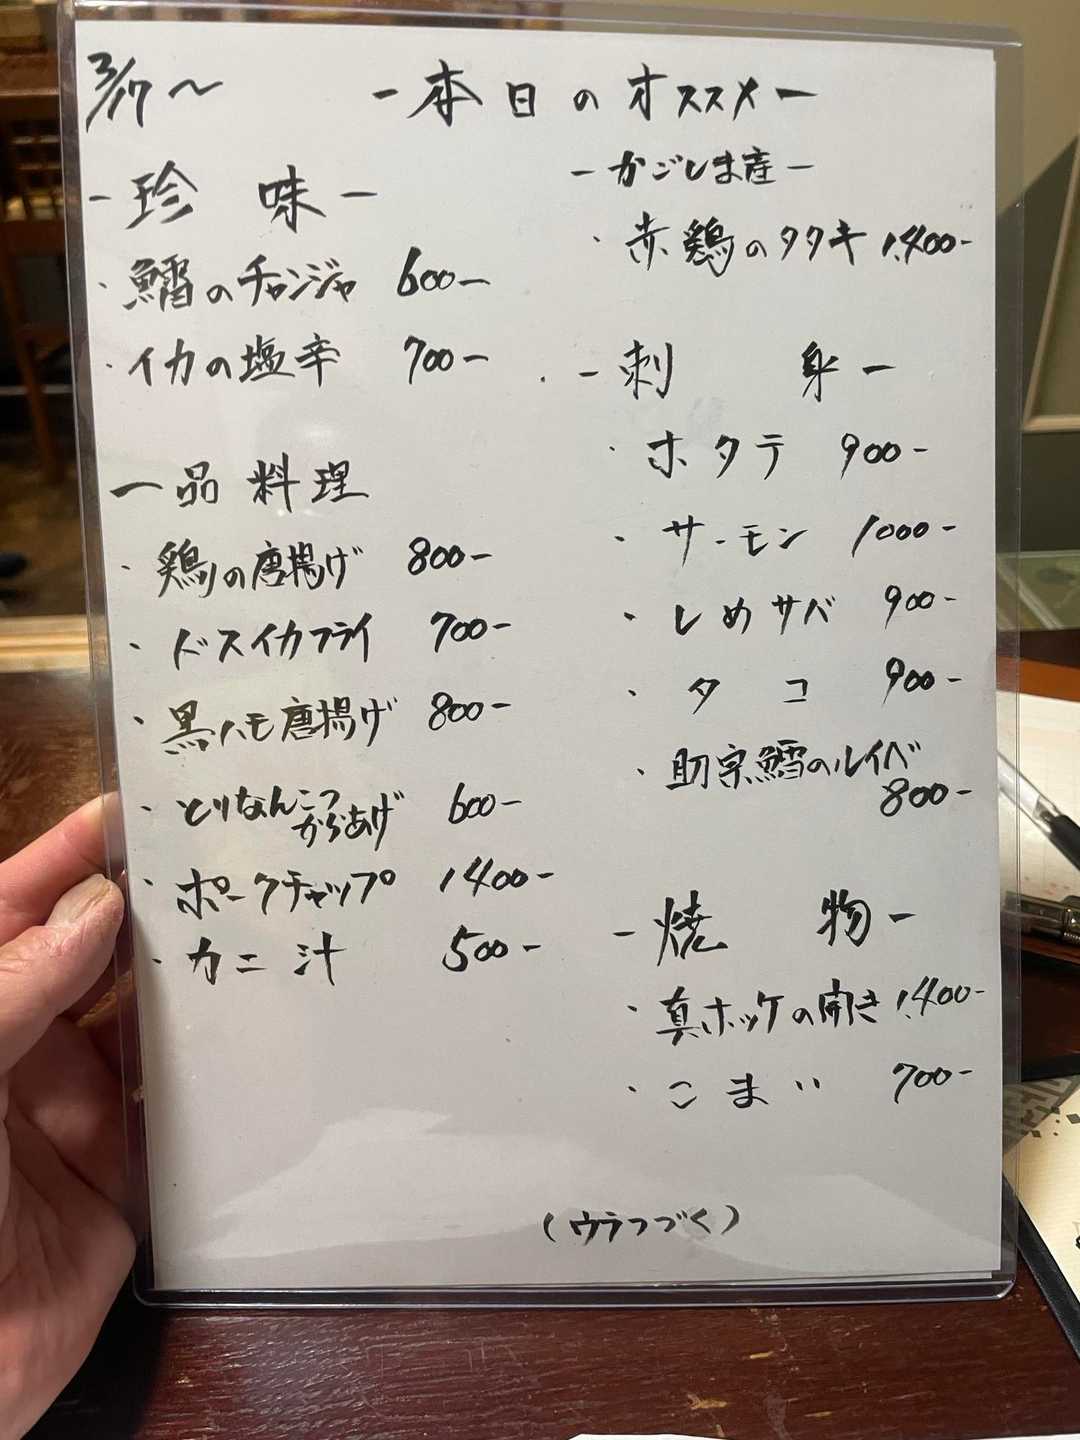 3/17〜
-本日のオススメ-
-珍味-
・鱈のチャンジャ 600-
・イカの塩辛 700-
一品料理
・鶏の唐揚げ 800-
・ドスイカフライ 700-
・黒ハモ唐揚げ 800-
・とりなんこつ
からあげ 600-
・ポークチャップ 1400-
・カニ汁 500-
-かごしま産-
・赤鶏のタタキ 1,400-
-刺身-
・ホタテ 900-
・サーモン 1000-
・しめサバ 900-
・タコ 900-
・助宗鱈のルイベ
800-
-焼物-
・真ホッケの開き 1,400-
・こまい 700-
(ウラつづく)